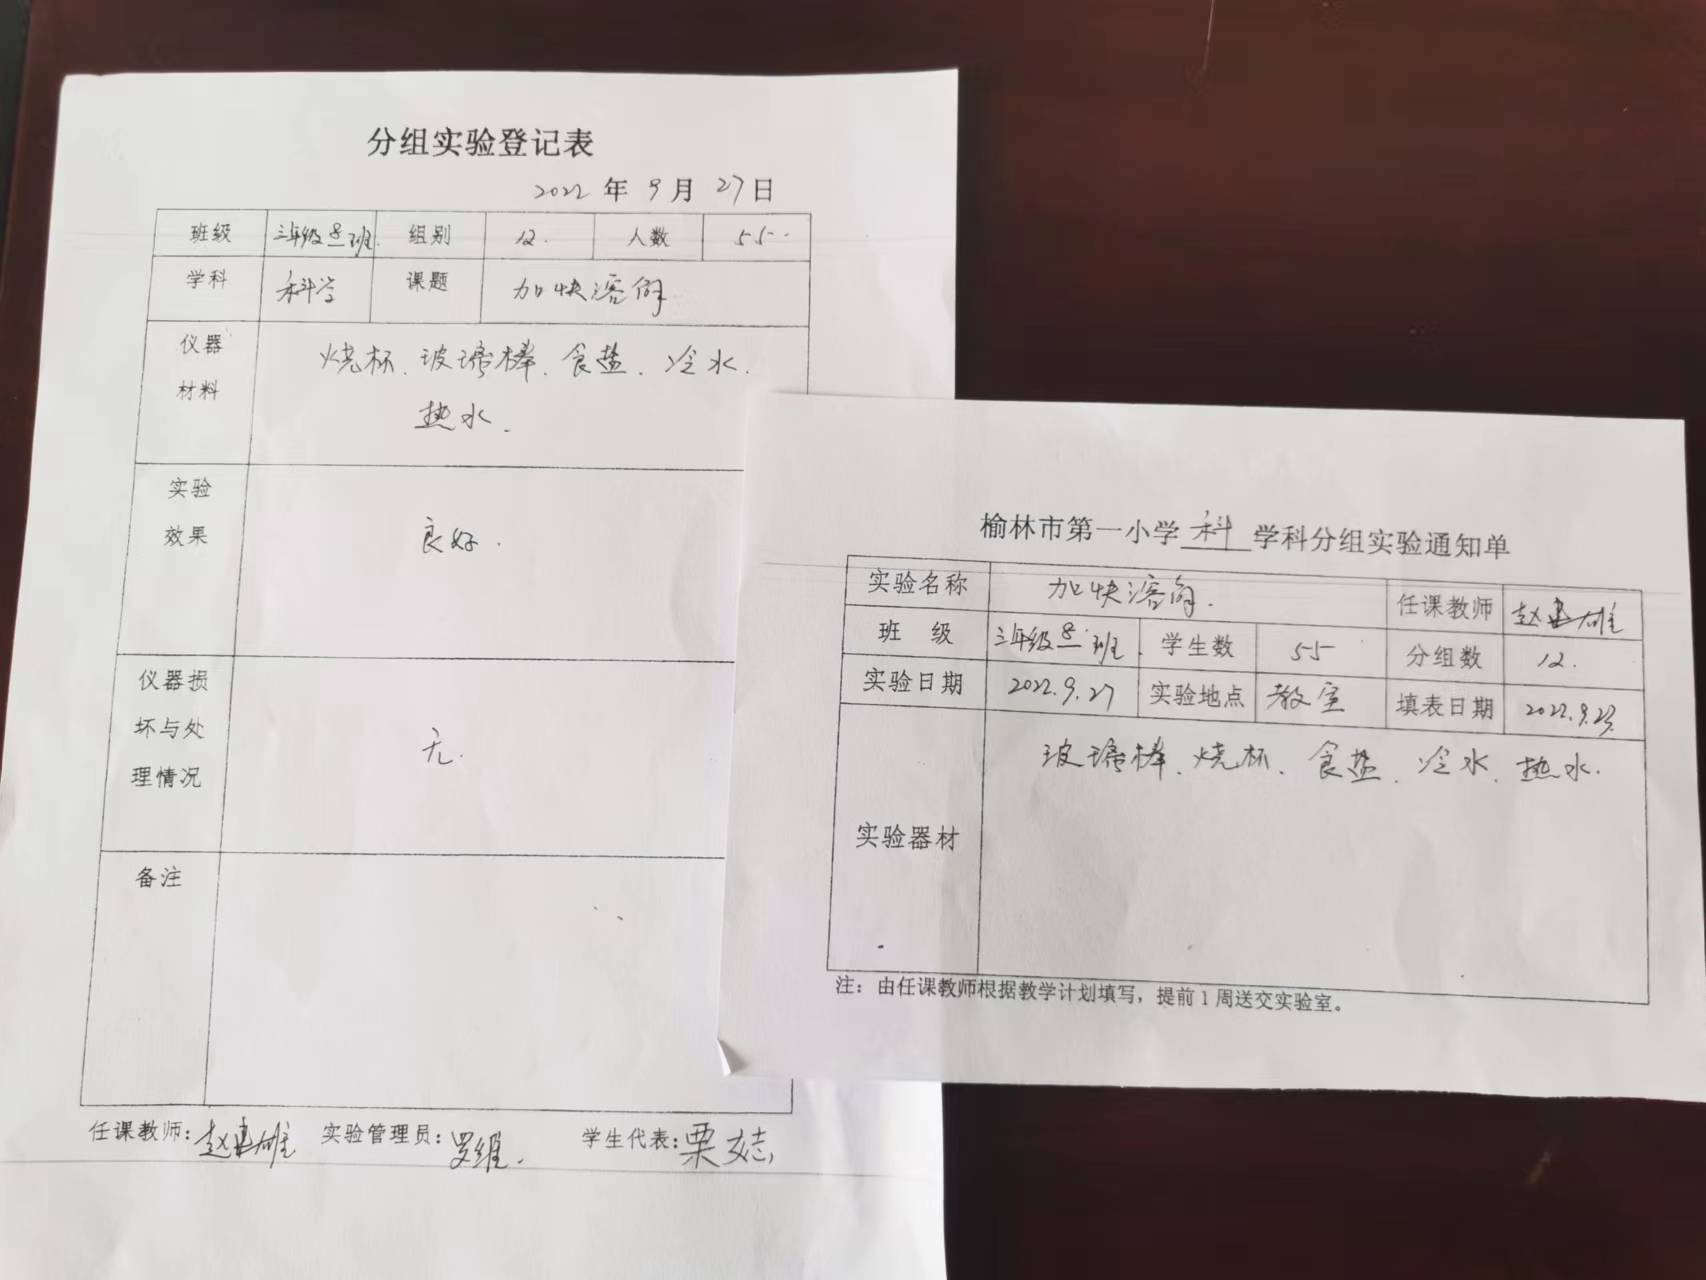 分组实验登记表
2022 年 9 月 27 日
班级 三年级 8 班 组别 12. 人数 55.
学科 科学 课题 加快溶解
仪器材料 烧杯、玻璃棒、食盐、冷水、
热水.
实验效果 良好.
仪器损坏与处理情况 无.
备注
任课教师: 赵建雄 实验管理员: 罗维. 学生代表: 栗
榆林市第一小学 科 学科分组实验通知单
实验名称 加快溶解. 任课教师 赵建雄
班 级 三年级 8 班. 学生数 55 分组数 12.
实验日期 2022.9.27 实验地点 教室 填表日期 2022.9.23.
实验器材 玻璃棒、烧杯、食盐、冷水、热水.
注：由任课教师根据教学计划填写，提前1周送交实验室。